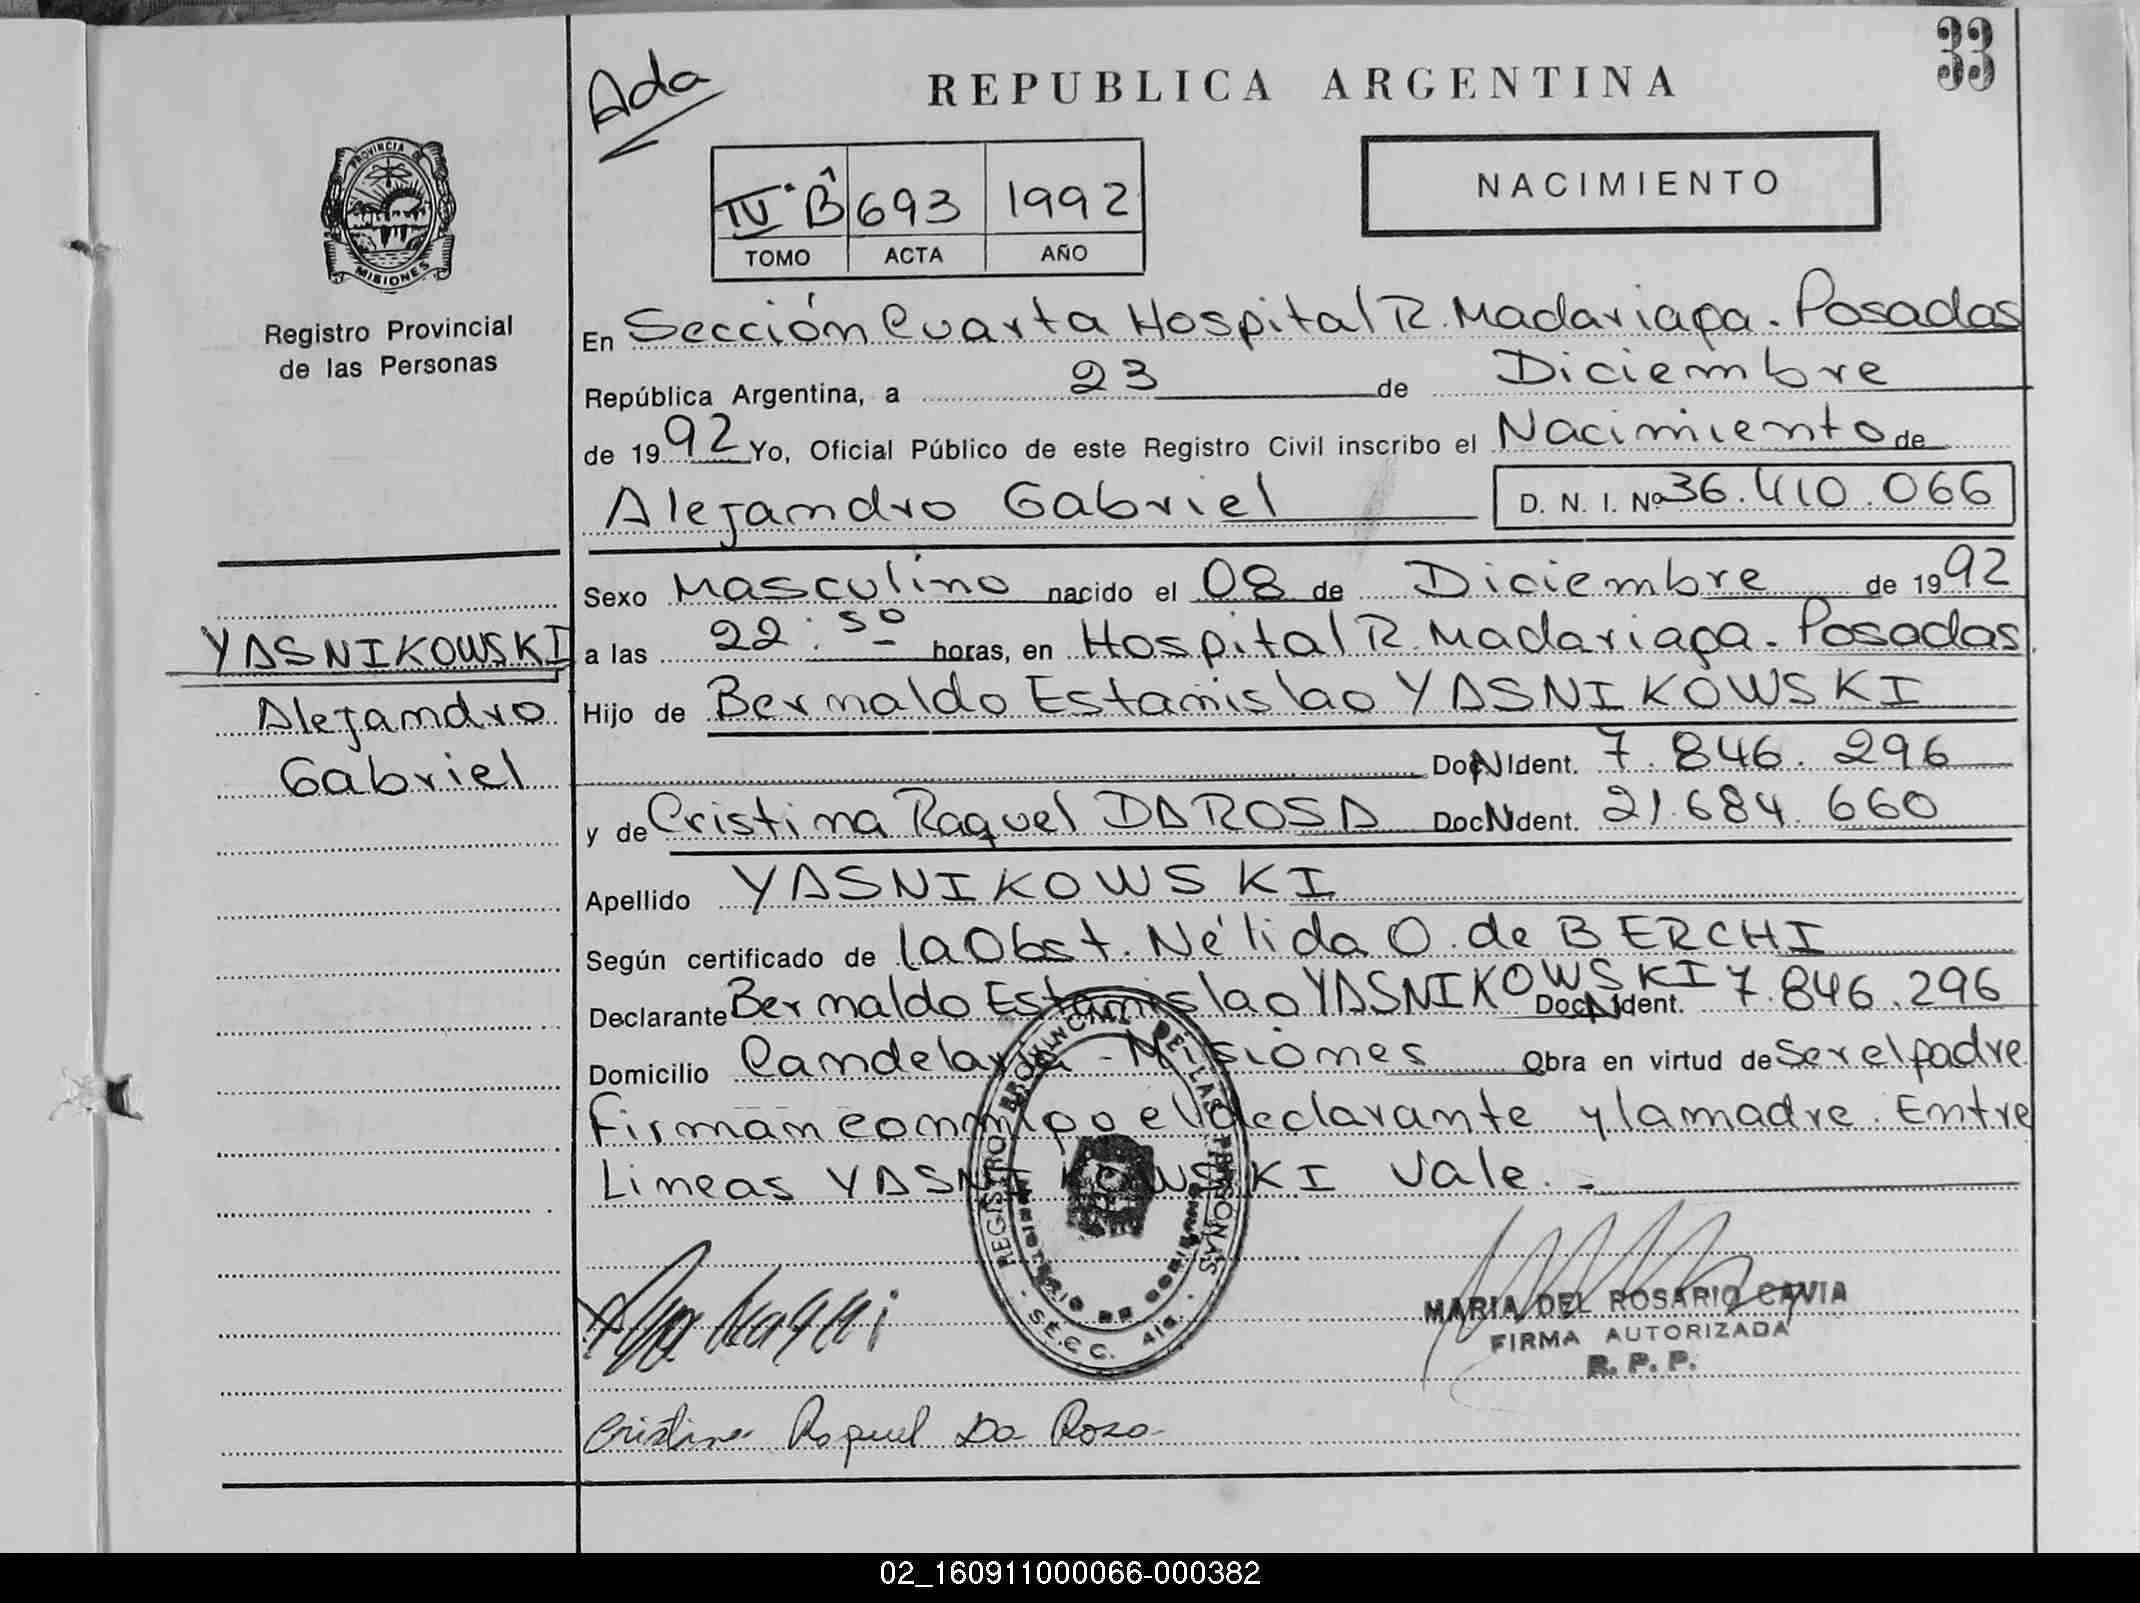 33
Ada
REPUBLICA ARGENTINA
NACIMIENTO
IV·B^ 693 1992
TOMO ACTA AÑO
PROVINCIA DE
MISIONES
Registro Provincial
de las Personas
En Sección Cuarta Hospital R. Madariaga - Posadas
República Argentina, a 23 de Diciembre
de 1992 Yo, Oficial Público de este Registro Civil inscribo el Nacimiento de
Alejandro Gabriel D. N. I. Nº 36.410.066
Sexo Masculino nacido el 08 de Diciembre de 1992
a las 22:50 horas, en Hospital R. Madariaga - Posadas
YASNIKOWSKI
Alejandro
Gabriel
Hijo de Bernaldo Estanislao YASNIKOWSKI
Doc N Ident. 7.846.296
y de Cristina Raquel DA ROSA Doc N Ident. 21.684.660
Apellido YASNIKOWSKI
Según certificado de la Obst. Nélida O. de BERCHI
Declarante Bernaldo Estanislao YASNIKOWSKI Doc N Ident. 7.846.296
Domicilio Candelaria - Misiones Obra en virtud de ser el padre
Firman conmigo el declarante y la madre. Entre
Lineas YASNIKOWSKI Vale. -
REGISTRO PROVINCIAL DE LAS PERSONAS
MINISTERIO DE GOBIERNO
SECC. 4ta.
MARIA DEL ROSARIO CAVIA
FIRMA AUTORIZADA
R. P. P.
Cristina Raquel Da Rosa
02_160911000066-000382